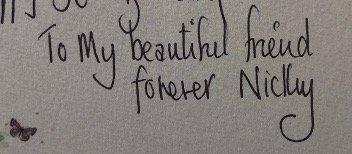 To My beautiful friend
forever Nicky